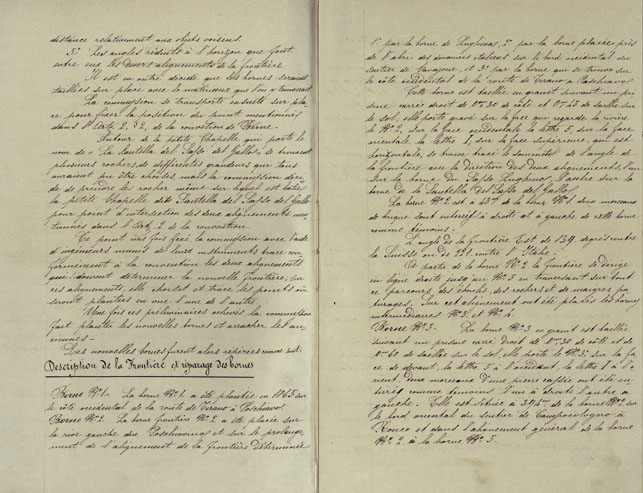 distance relativement aux objets voisins.
3° Les angles réduits à l'horizon que font
entre eux les divers alignements de la frontière.
Il est en outre décidé que les bornes seraient
taillées sur place avec le matériaux que l'on y trouverait
La commission se transporte ensuite sur pla-
ce pour fixer la position du point mentionné
dans l'Art. 2. § 2, de la convention de Berne.
Autour de la petite Chapelle qui porte le
nom de "La Santella del Sasso del Gallo, se trouvent
plusieurs rochers, de différentes grandeurs que l'on
aurait pu être choisis, mais la commission déci-
de de prendre le rocher même sur lequel est bâtie
la petite Chapelle dite Santella del Sasso del Gallo
pour point d'intersection des deux alignements men-
tionnés dans l'Art. 2 de la convention.
Ce point une fois fixé la commission avec l'aide
d'ingénieurs munis de leurs instruments trace con-
formément à la convention les deux alignements
qui doivent déterminer la nouvelle frontière; sur
ces alignements, elle choisit et trace les points où
seront plantées en vue l'une de l'autre.
Une fois ces préliminaires achevés la commission
fait planter les nouvelles bornes et arracher les an-
ciennes.
Les nouvelles bornes furent alors repérées comme suit:
Description de la Frontière et repérage des bornes
Borne N° 1. La borne N° 1. a été plantée en 1863 sur
le côté occidental de la route de Tirano à Poschiavo.
Borne N° 2. La borne frontière N° 2 a été placée sur
la rive gauche du Poschiavino et sur le prolonge-
ment de l'alignement de la frontière déterminée
1° par la borne de 2° par la borne placée près
de l'abri des douaniers italiens sur le bord occidental du
sentier de et 3° par la borne qui se trouve sur
le côté occidental de la route de Tirano à Poschiavo.
Cette borne est taillée en granit suivant un pri-
sme carré droit de 0m30 de côté et 0m65 de saillie sur
le sol, elle porte gravé sur la face que regarde la rivière
le N° 2, sur la face occidentale la lettre S, sur la face
orientale la lettre I, sur la face supérieure, qui est
horizontale, se trouve tracé le sommet de l'angle de
la frontière avec la direction des deux alignements l'un
sur la borne du Sasso l'autre sur la
borne de la Santella del Sasso del Gallo.
La borne N° 2 est à 43m de la borne N° 1 deux morceaux
de brique sont enterrés à droite et à gauche de cette borne
comme témoins.
L'angle de la frontière Est de 139. degrés entre
la Suisse ou de 221. contre l'Italie.
A partir de la borne N° 2 la frontière se dirige
en ligne droite jusqu'au N° 5 en traversant sur tout
ce parcours des éboulis, des rochers et de maigres pa-
turages. Sur cet alignement ont été placées les bornes
intermédiaires N° 3. et N° 4.
Borne N° 3. La borne N° 3 en granit est taillée
suivant un prisme carré droit de 0m30 de côté et de
0m60 de saillie sur le sol, elle porte le N° 3, sur la fa-
ce de devant, la lettre S à l'occident, la lettre I à l'o-
rient, deux morceaux d'une pierre cassée ont été en-
terrés comme témoins l'un à droite l'autre à
gauche. Elle est située à de la borne N° 2 sur
le bord oriental du sentier de Campocologno à
et dans l'alignement général de la borne
N° 2. à la borne N° 5.